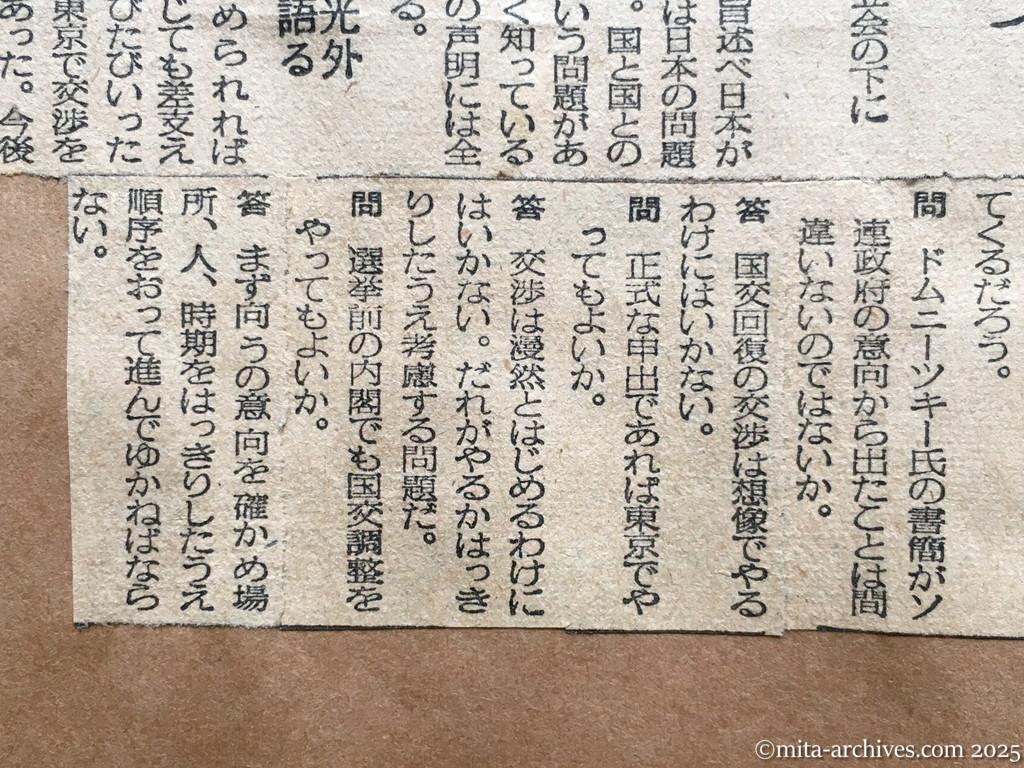 会の下に
自述べ日本が
は日本の問題
。国と国との
いう問題があ
く知っている
の声明には全
る。
光外
語る
められれば
じても差支え
びたびいった
東京で交渉を
あった。今後
てくるだろう。
問　ドムニーツキー氏の書簡がソ
連政府の意向から出たことは間
違いないのではないか。
答　国交回復の交渉は想像でやる
わけにはいかない。
問　正式な申出であれば東京でや
ってもよいか。
答　交渉は漫然とはじめるわけに
はいかない。だれがやるかはっき
りしたうえ考慮する問題だ。
問　選挙前の内閣でも国交調整を
やってもよいか。
答　まず向うの意向を確かめ場
所、人、時期をはっきりしたうえ
順序をおって進んでゆかねばなら
ない。
©mita-archives.com 2025